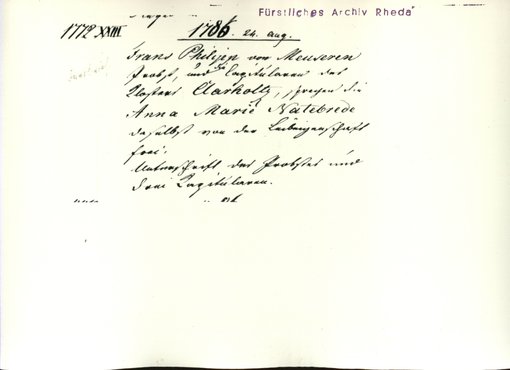 Fürstliches Archiv Rheda
1772 XXIII
1786. 24. Aug.
Franz Philipp von Meuseren
Probst, und die Capitularen des
Klosters Clarholtz, sprechen die
Anna Marie Natebrede
daselbst von der Leibeigenschaft
frei.
Unterschrift des Probstes und
drei Capitularen.